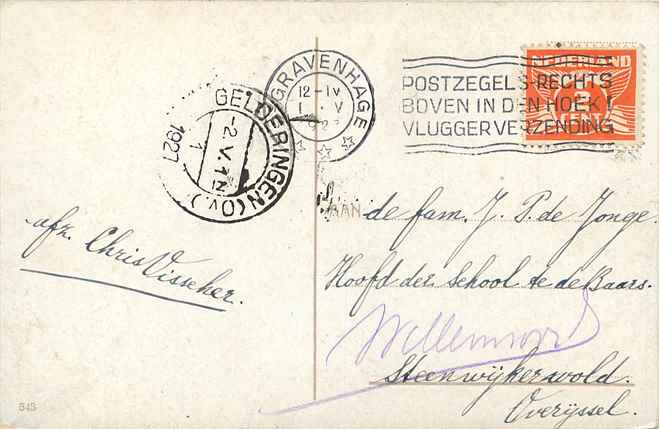 NEDERLAND
2
CENT
'S GRAVENHAGE
12-IV
1 V
192
POSTZEGELS RECHTS
BOVEN IN DEN HOEK!
VLUGGER VERZENDING
GELDERINGEN (Ov.)
-2.V.12
1
1927
AAN
de fam. J. P. de Jonge.
Hoofd der School te de Baars.
Willemsoord
Steenwijkerwold.
Overijssel.
afz. Chris Visscher.
543